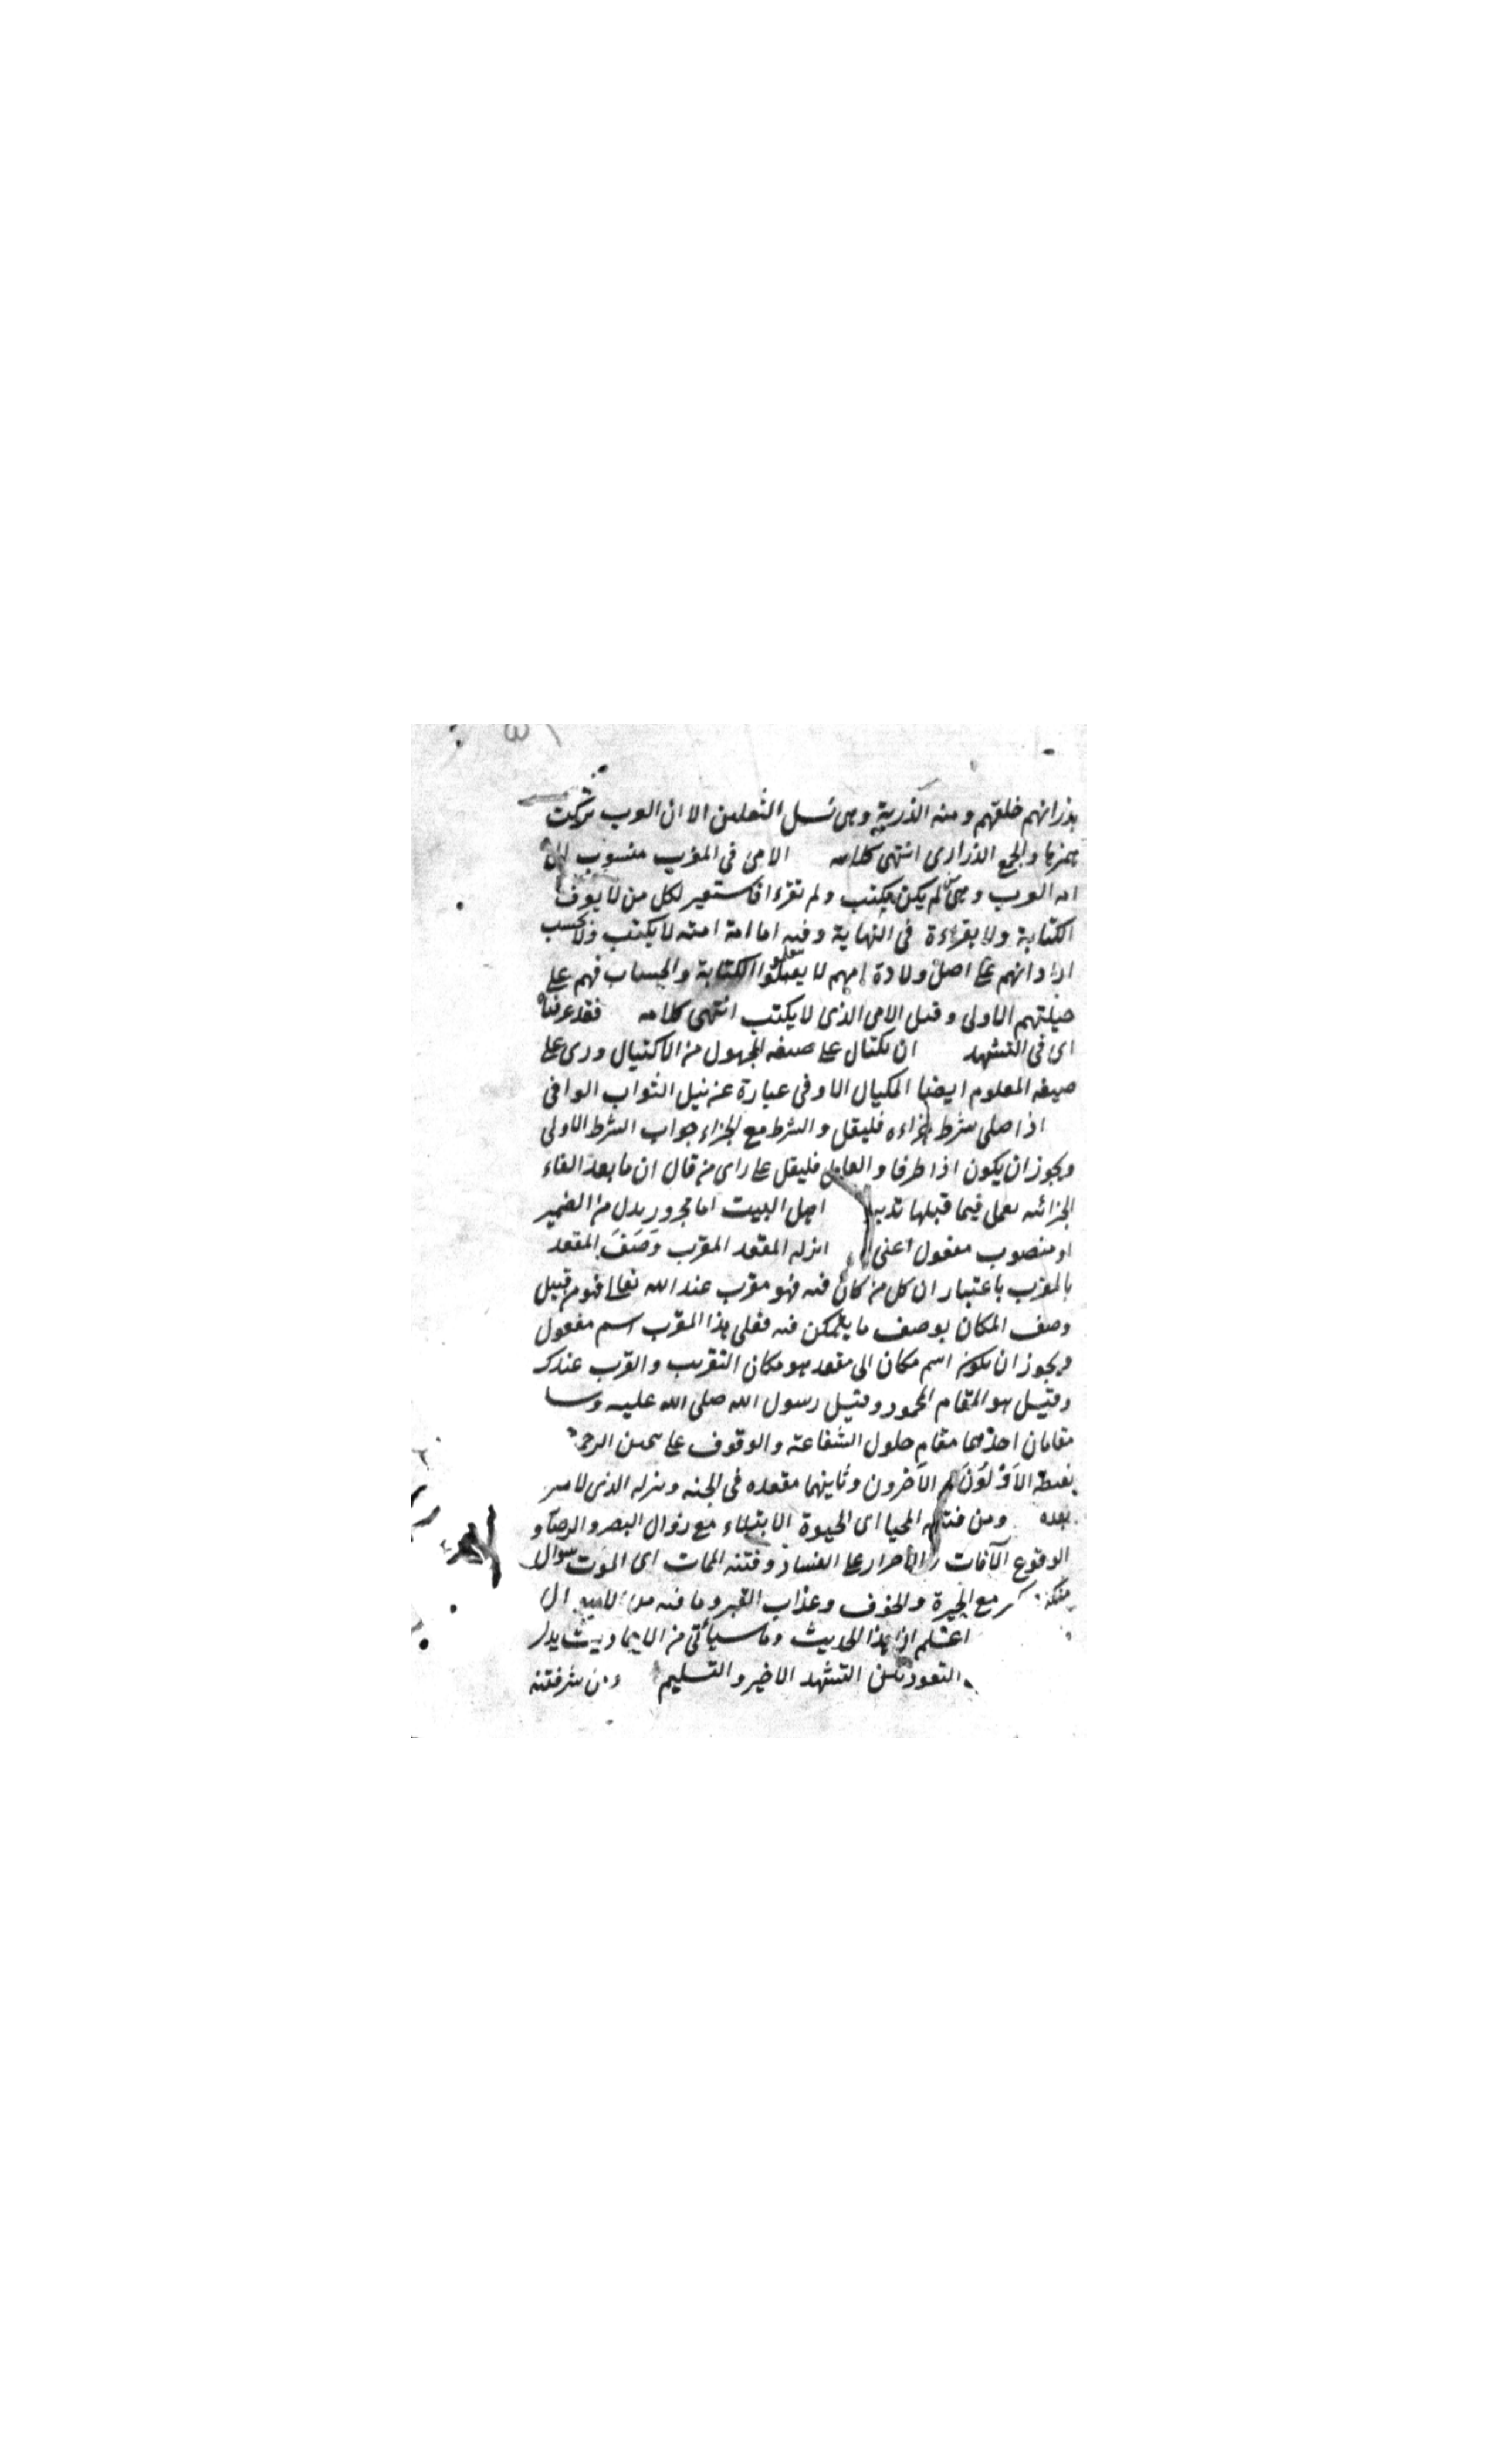 يذرأنهم خلقهم ومنه الذرية وهى نسل الثقلين الا ان العرب تركت
همزها والجمع الذرارى انتهى كلامه الامى فى المغرب منسوب الى
امه العرب وهى لم يكن يكتب ولم تقرء فاستعير لكل من لا يعرف
الكتابة ولا بقراءة فى النهاية وفيه اما امة اميه لا يكتب ولا يحسب
اراد انهم على اصل ولادة امهم لا يعلموا الكتابة والحساب فهم على
جبلتهم الاولى وقيل الامى الذى لا يكتب انتهى كلامه فقد عرفناه
اى فى التشهد ان يكتال على صيغه المجهول من الاكتيال وروى على
صيغه المعلوم ايضا المكيال الاوفى عبارة عن نيل الثواب الوافى
اذا صلى شرط جزاءه فليقل والشرط مع الجزاء جواب الشرط الاولى
ويجوز ان يكون اذا ظرفا والعامل فليقل على راى من قال ان ما بعد الفاء
الجزائيه يعمل فيما قبلها تدبر اهل البيت اما مجرور بدل من الضمير
او منصوب مفعول اعنى انزله المقعد المقرب وَصَفَ المقعد
بالمقرب باعتبار ان كل من كان فيه فهو مقرب عند الله تعالى فهو من قبيل
وصف المكان بوصف ما يتمكن فيه فعلى هذا المقرب اسم مفعول
ويجوز ان يكون اسم مكان اى مقعد هو مكان التقريب والقرب عندك
وقيل هو المقام المحمود وقيل رسول الله صلى الله عليه وسا
مقامان احدهما مقام حلول الشفاعة والوقوف على يمين الرحمن
يغبطه الاَوّلوُنَ والآخرون وثانيهما مقعده فى الجنه ومنزله الذى لا
بعده ومن فتنه المحيا اى الحيوة الابتلاء مع زوال البصر والرضاء و
الوقوع الآفات والاصرار على الفساد وفتنه الممات اى الموت سوال
منكر مع الحيرة والخوف وعذاب القبر وما فيه من
اعلم ان هذا الحديث وما سيأتى من الاحاديث يدل
التعوذ بين التشهد الاخير والتسليم ومن شر فتنه